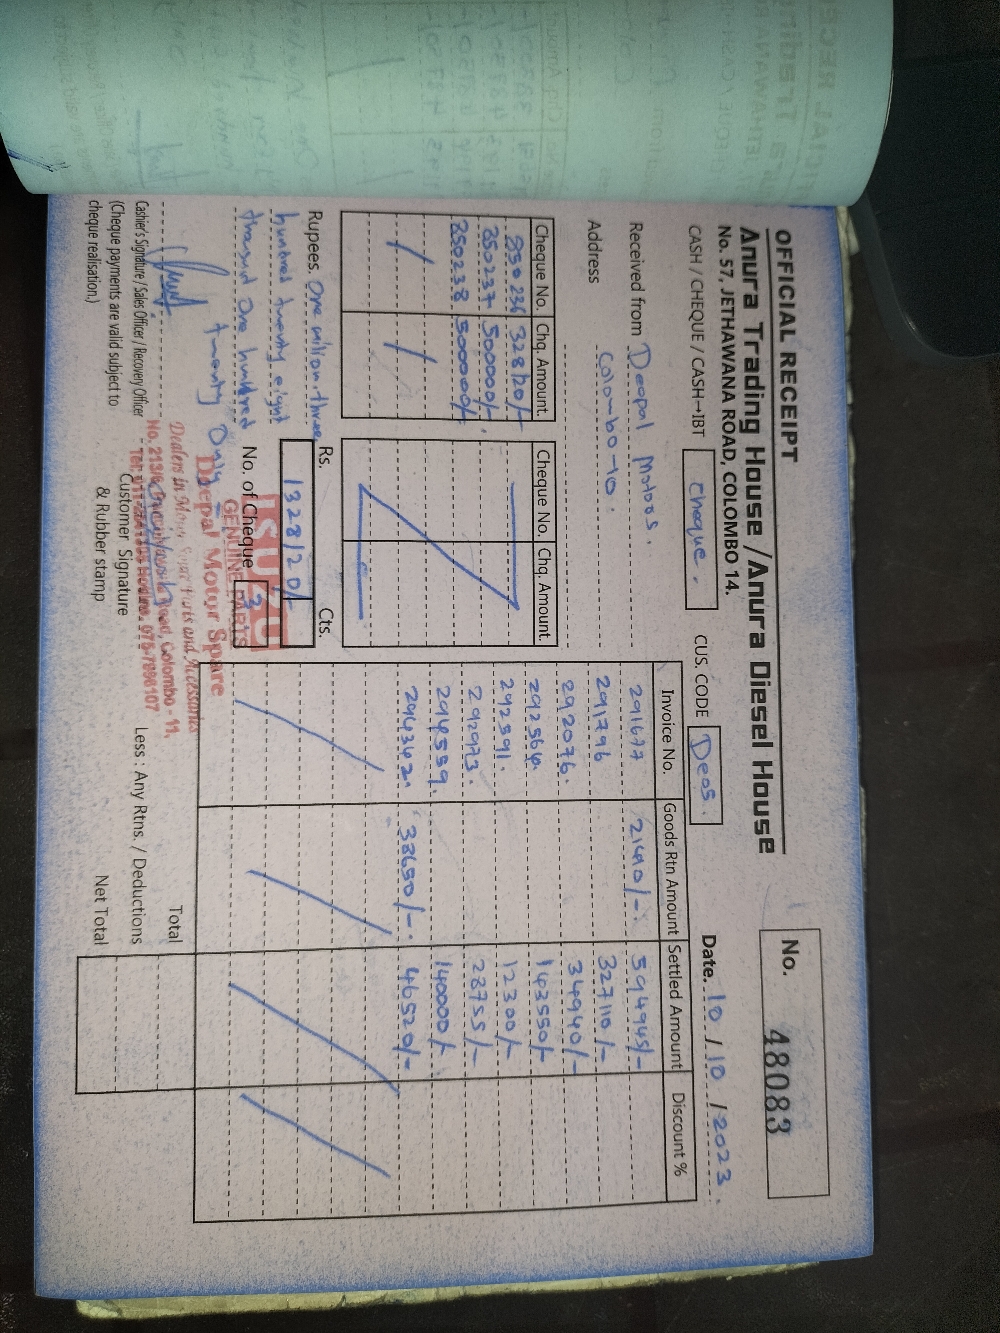 OFFICIAL RECEIPT
Anura Trading House /Anura Diesel House
No. 57, JETHAWANA ROAD, COLOMBO 14.
No. 48083
CASH / CHEQUE / CASH→IBT Cheque.
CUS. CODE Deos.
Date. 10 / 10 / 2023.
Received from Deepal Motors.
Address Colombo-10.
Cheque No. Chq. Amount. Cheque No. Chq. Amount.
850236 328120/-
850237 500000/-
850238 500000/-
Invoice No. Goods Rtn Amount Settled Amount Discount %
291677 21490/-. 594945/-
291796 327110/-
292076. 34940/-
292564. 143550/-
292591. 12300/-
292973. 28755/-
294559. 140000/-
294242. 38650/-. 46520/-
Total
Less : Any Rtns. / Deductions
Net Total
Rupees. One million three
hundred twenty eight
thousand One hundred
twenty Only
Rs. Cts.
1328120/-
No. of Cheque 3
ISUZU
GENUINE PARTS
Deepal Motor Spare
Dealers in Motor Spare Parts and Accessories
Colombo - 11.
Cashier's Signature / Sales Officer / Recovery Officer
(Cheque payments are valid subject to
cheque realisation.)
Customer Signature
& Rubber stamp